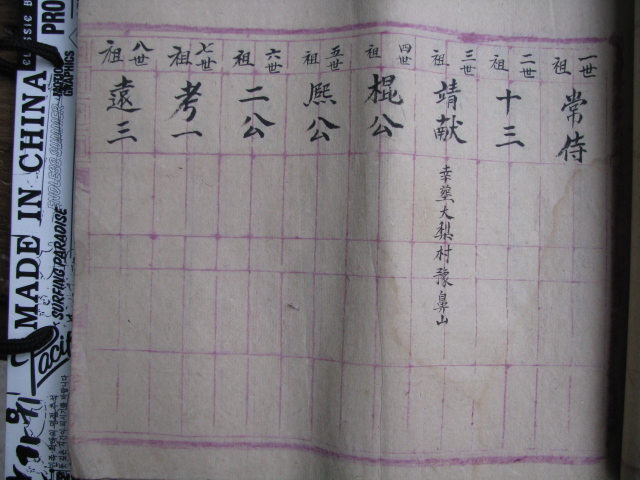 一世祖 常侍
二世祖 十三
三世祖 靖献
幸墾大梨村豫鼻山
四世祖 棍公
五世祖 熈公
六世祖 二公
七世祖 考一
八世祖 遠三
MADE IN CHINA
SURFING PARADISE
ENDLESS SUMMER
GRAPHICS
CLASSIC
PRO
Pacif